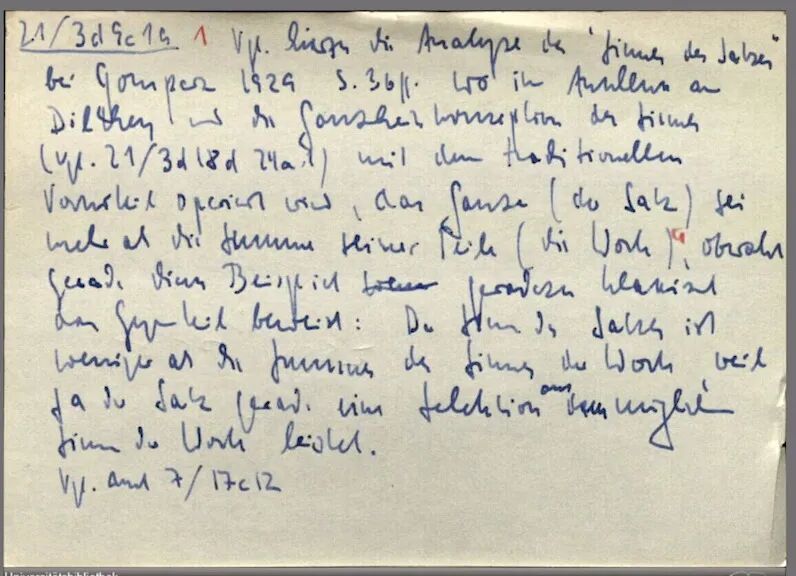 21/3d9c19 1 Vgl. hierzu die Analyse des "Sinnes des Satzes"
bei Gomperz 1929 S. 36ff. wo im Anschluss an
Dilthey und die Ganzheitskonzeption des Sinnes
(vgl. 21/3d18d 24a) mit dem traditionellen
Vorurteil operiert wird, das Ganze (der Satz) sei
mehr als die Summe seiner Teile (die Worte), obwohl
gerade dieses Beispiel geradezu klassisch
das Gegenteil beweist: Der Sinn des Satzes ist
weniger als die Summe des Sinnes der Worte, weil
ja der Satz gerade eine Selektion aus dem möglichen
Sinn der Worte leistet.
Vgl. auch 7/17c12